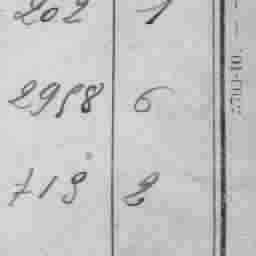 202 1
2958 6
719 2